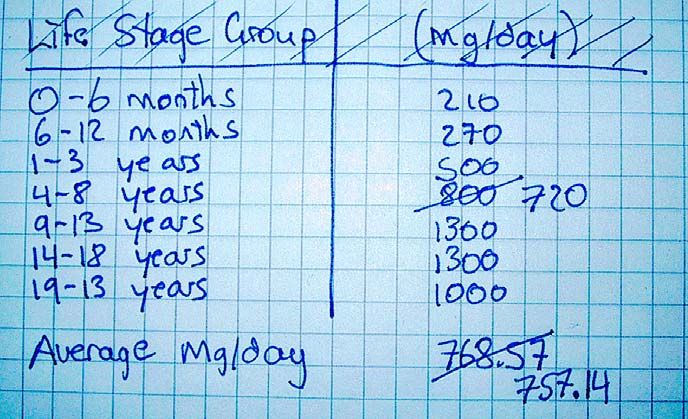 Life Stage Group (Mg/day)
0-6 months 210
6-12 months 270
1-3 years 500
4-8 years 800 720
9-13 years 1300
14-18 years 1300
19-13 years 1000
Average Mg/day 768.57
757.14